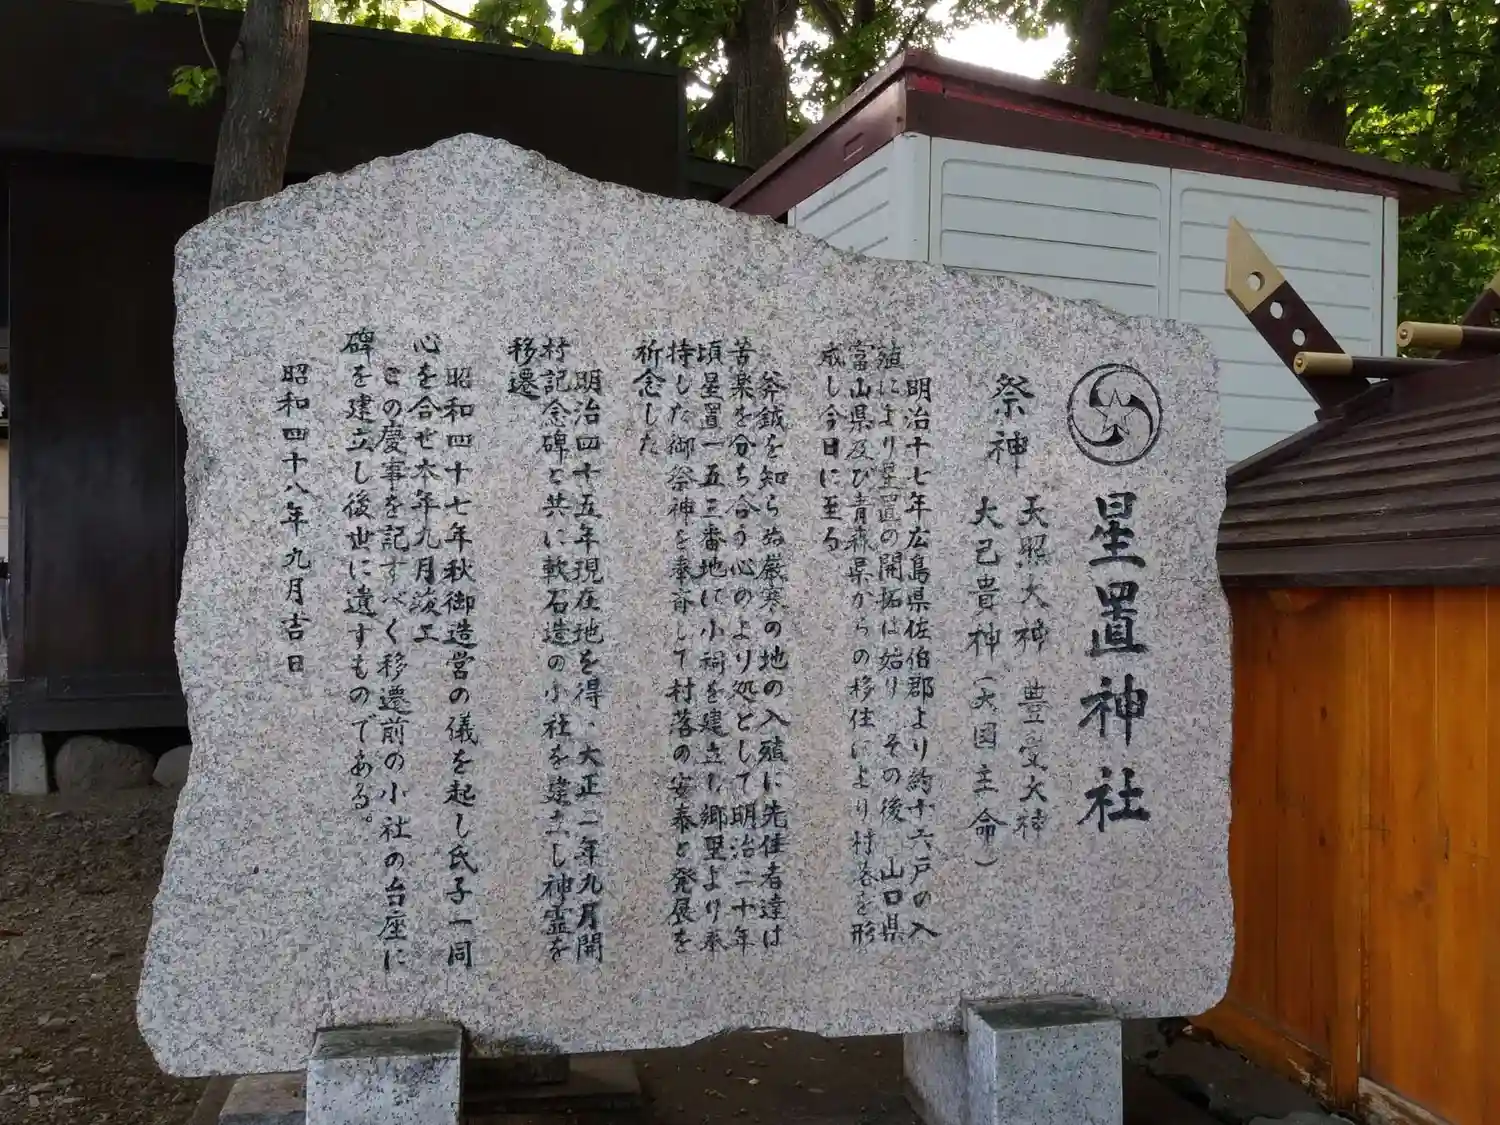 星置神社
祭神
天照大神 豊受大神
大己貴神(大国主命)
明治十七年広島県佐伯郡より約十六戸の入
殖により星置の開拓は始り その後 山口県
富山県及び青森県からの移住により村落を形
成し今日に至る
斧鉞を知らぬ厳寒の地の入殖に先住者達は
苦楽を分ち合う心のより処として明治二十年
頃星置一五三番地に小祠を建立し郷里より奉
持した御祭神を奉斎して村落の安泰と発展を
祈念した
明治四十五年現在地を得、大正二年九月開
村記念碑と共に軟石造の小社を建立し神霊を
移遷
昭和四十七年秋御造営の儀を起し氏子一同
心を合せ本年九月竣工
この慶事を記すべく移遷前の小社の台座に
碑を建立し後世に遺すものである。
昭和四十八年九月吉日